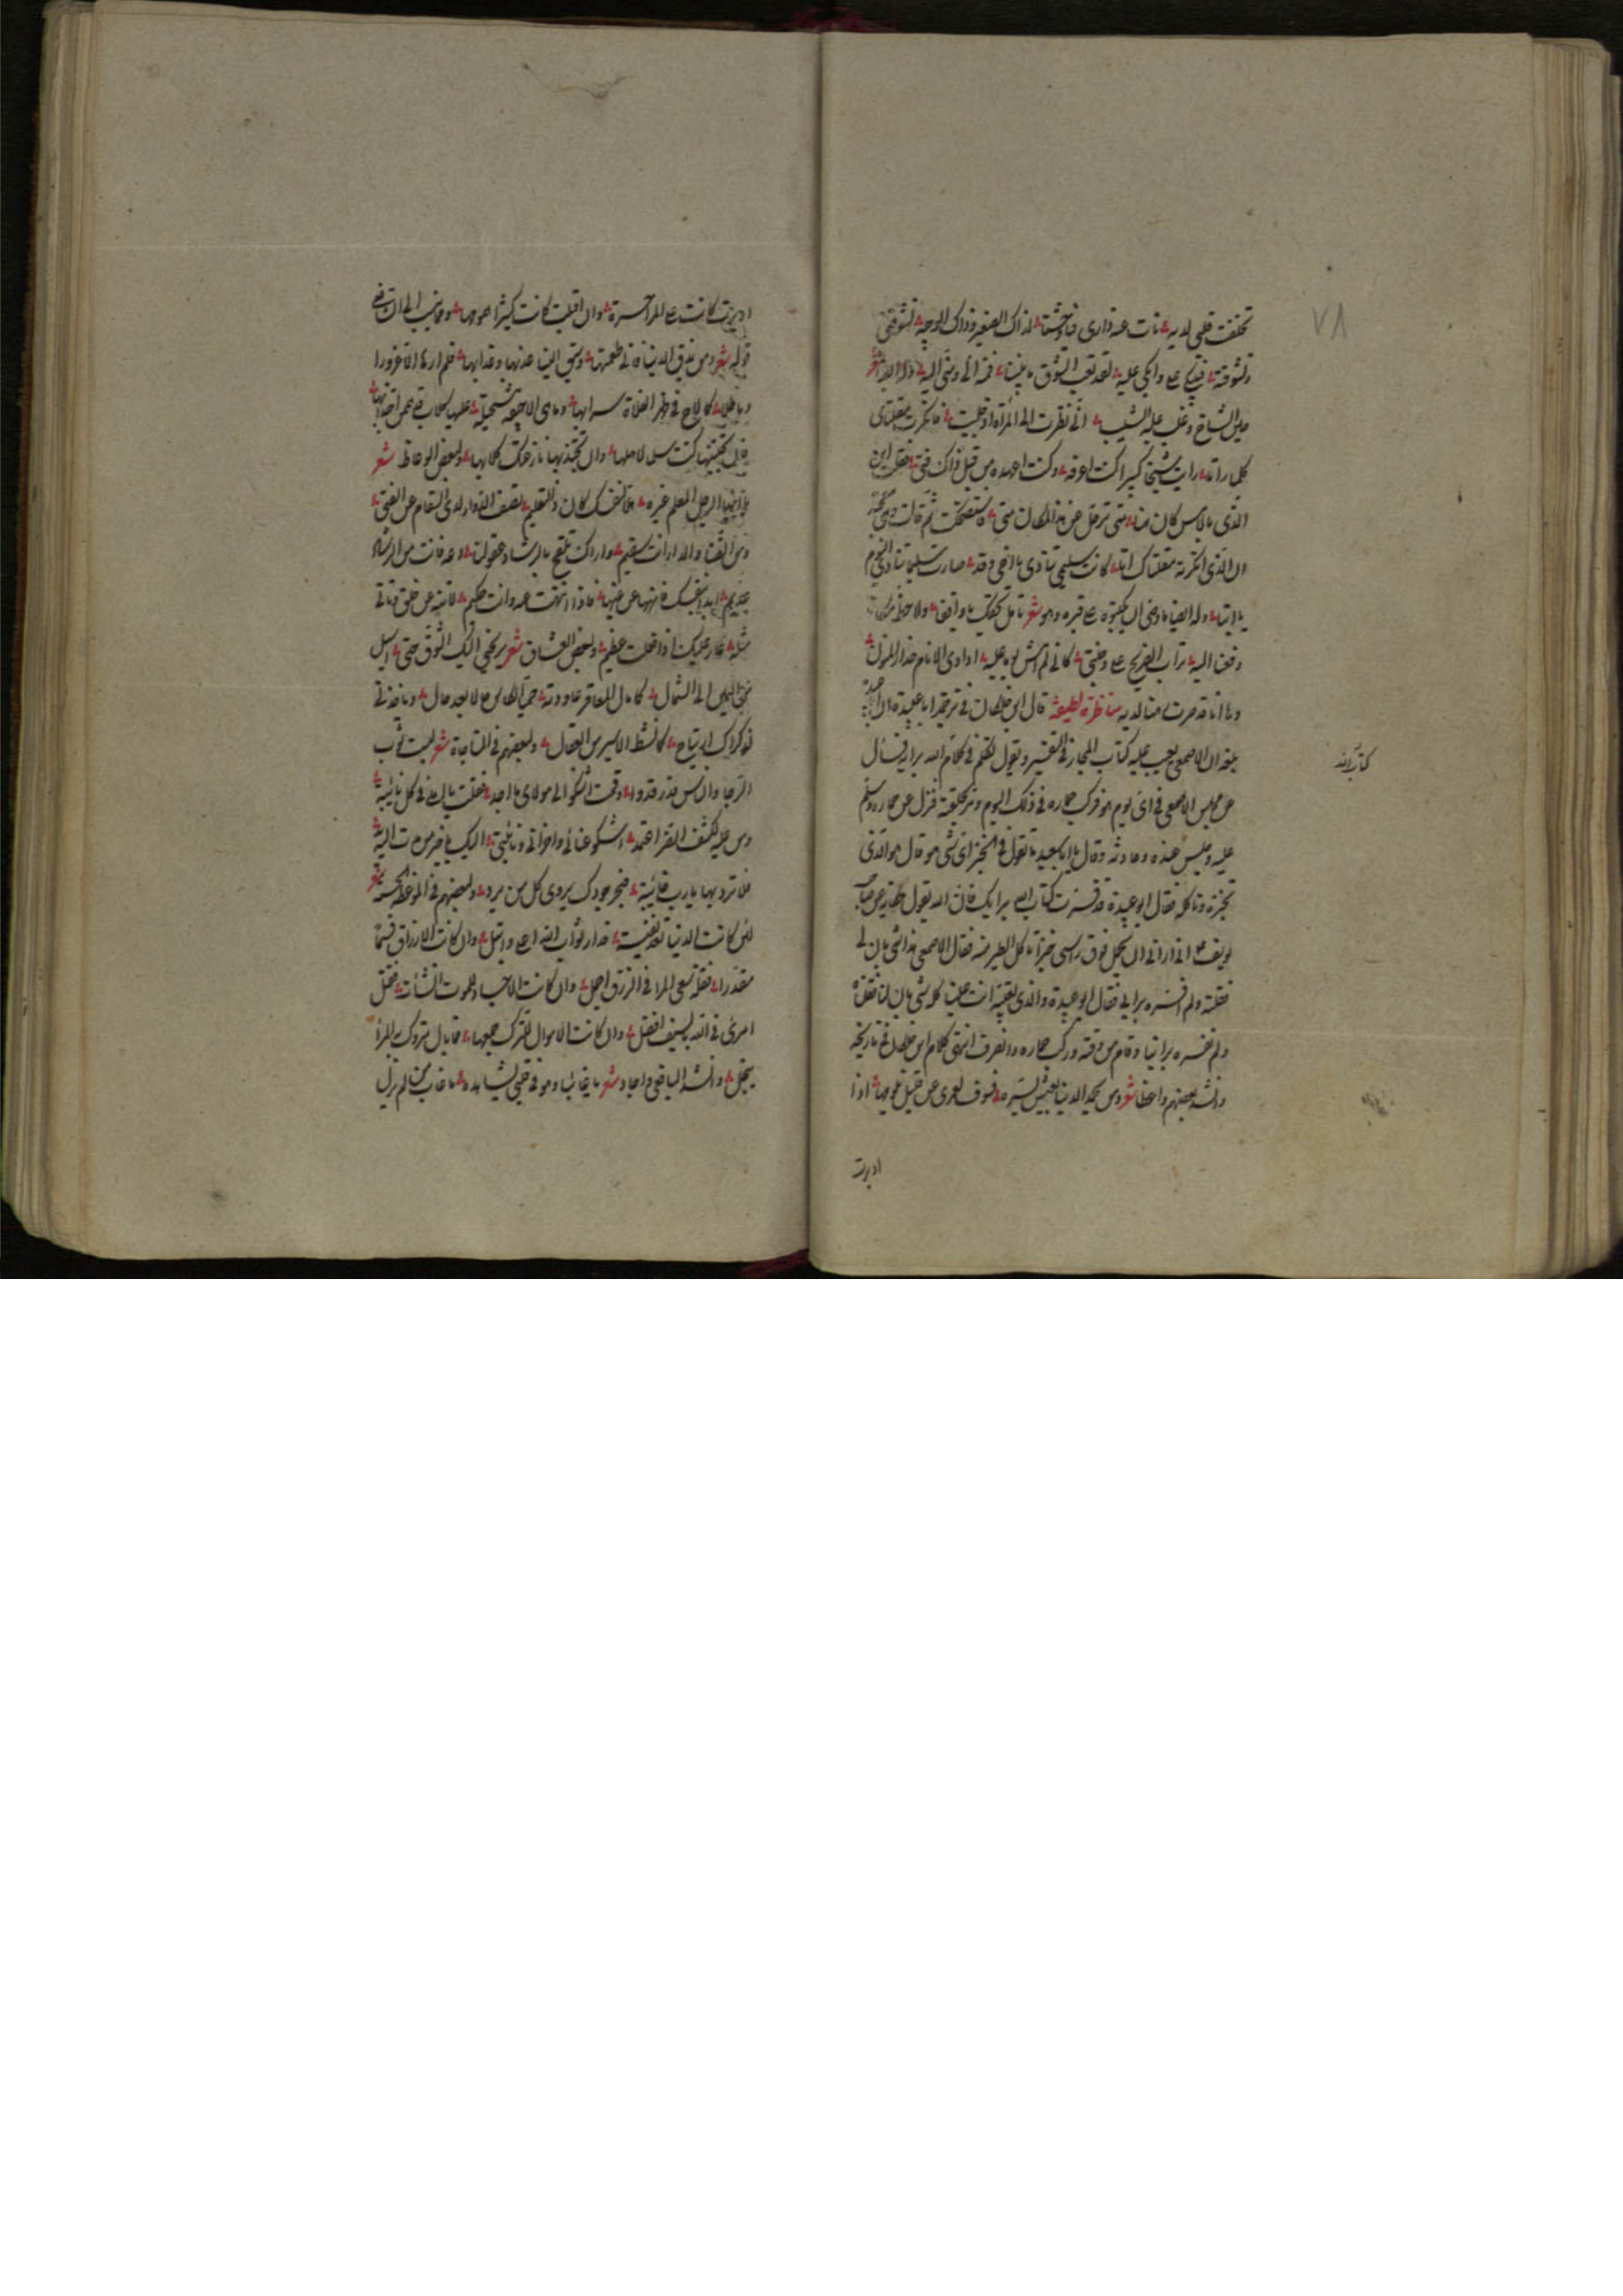 ٧٨
تخلفت قلبي لديه نأت عنه داري فيا وحشتا لذاك الصغير وذاك الوجيه تشوقني
وتشوقته فيبكي علي وابكي عليه لقد تعب الشوق ما بيننا فمنه الي ومني اليه
حين الشاخ وغلب عليه الشيب اني نظرت الى المرآة اذ جليت فانكرت مقلتاي
كلما رأتا رايت شيخا كبيرا كنت اعرفه وكنت اعهده من قبل ذاك فتى فقلت اين
الذي بالامس كان هنا متى ترحل عن هذا المكان متى فاستضحكت ثم قالت وهي
ان الذي انكرته مقلتاك اتى كانت سليمى تنادي يا اخي وقد صارت سليمى تنادي اليوم
يا ابتا وله ايضا واوصى ان يكتبوه على قبره وهو شعر تأمل بحقك يا واقفا ولاحظ مكانا
دفعنا اليه تراب الضريح على وجنتي كاني لم امش يوما عليه اداوي الانام حذار المنون
وها انا قد صرت رهنا لديه مناظرة لطيفة قال ابن خلكان في ترجمة ابا عبيدة ان ابا عبيدة
بلغه ان الاصمعي يعيب عليه كتاب المجاز في التفسير ويقول تكلم في كلام الله برايه فسأل
كتاب الله
عن مجلس الاصمعي في اي يوم هو فركب حماره في ذلك اليوم ومر بحلقته فنزل عن حماره وسلم
عليه وجلس عنده وحادثه وقال يا ابا سعيد ما تقول في الخبز اي شيء هو قال هو الذي
تخبزه وتاكله فقال ابو عبيدة قد فسرت كتاب الله برايك فان الله يقول حكاية عن صاحب
يوسف ع اني اراني احمل فوق راسي خبزا تاكل الطير منه فقال الاصمعي هذا شيء بان لي
فقلته ولم افسره برايي فقال ابو عبيدة والذي تعيبه انت علينا كله شيء بان لنا فقلناه
ولم نفسره براينا وقام من وقته وركب حماره وانصرف انتهى كلام ابن خلكان في تاريخه
وانشد بعضهم واعظا شعر ومن يحمد الدنيا لعيش يسره فسوف لعمري عن قليل يلومها اذا
ادبرت
ادبرت كانت على المرء حسرة وان اقبلت كانت كثيرا همومها ومما ينسب الى الشافعي
قوله شعر ومن يذق الدنيا فاني طعمتها وسيق الينا عذبها وعذابها فلم ارها الا غرورا
وباطلا كما لاح في ظهر الفلاة سرابها وما هي الا جيفة مستحيلة عليها كلاب همهن اجتذابها
فان تجتنبها كنت سلما لاهلها وان تجتذبها نازعتك كلابها ولبعض الوعاظ شعر
يا ايها الرجل المعلم غيره هلا لنفسك كان ذا التعليم تصف الدواء لذي السقام من الضنى
ومن الضنا والداء انت سقيم واراك تلقح بالرشاد عقولنا وعظا وانت من الرشاد
عديم ابدأ بنفسك فانهها عن غيها فاذا انتهت عنه فانت حكيم لا تنه عن خلق وتاتي
مثله عار عليك اذا فعلت عظيم ولبعض العشاق شعر يرنحني اليك الشوق حتى اميل
من اليمين الى الشمال كما مال المعاقر عاودته حميا الكاس حالا بعد حال وياخذني
لذكراك ارتياح كما نشط الاسير من العقال ولبعضهم في المناجاة شعر لبست ثوب
الرجا والناس قد رقدوا وقمت اشكو الى مولاي ما اجد فقلت يا املي في كل نائبة
ومن عليه لكشف الضر اعتمد اشكو عنائي واحزاني ونائبتي اليك يا خير من مدت اليه
فلا تردها يا رب خائبة فبحر جودك يروي كل من يرد ولبعضهم في الموعظة الحسنة شعر
لئن كانت الدنيا تعد نفيسة فدار ثواب الله اعلى وانبل وان كانت الارزاق قسما
مقدرا فقلة سعي المرء في الرزق اجمل وان كانت الاجساد للموت انشئت فقتل
امرئ في الله بالسيف افضل وان كانت الاموال للترك جمعها فما بال متروك به المرء
يبخل وانشد اليافعي واجاد شعر يا غائبا وهو في قلبي يشاهده ما غاب من لم يزل